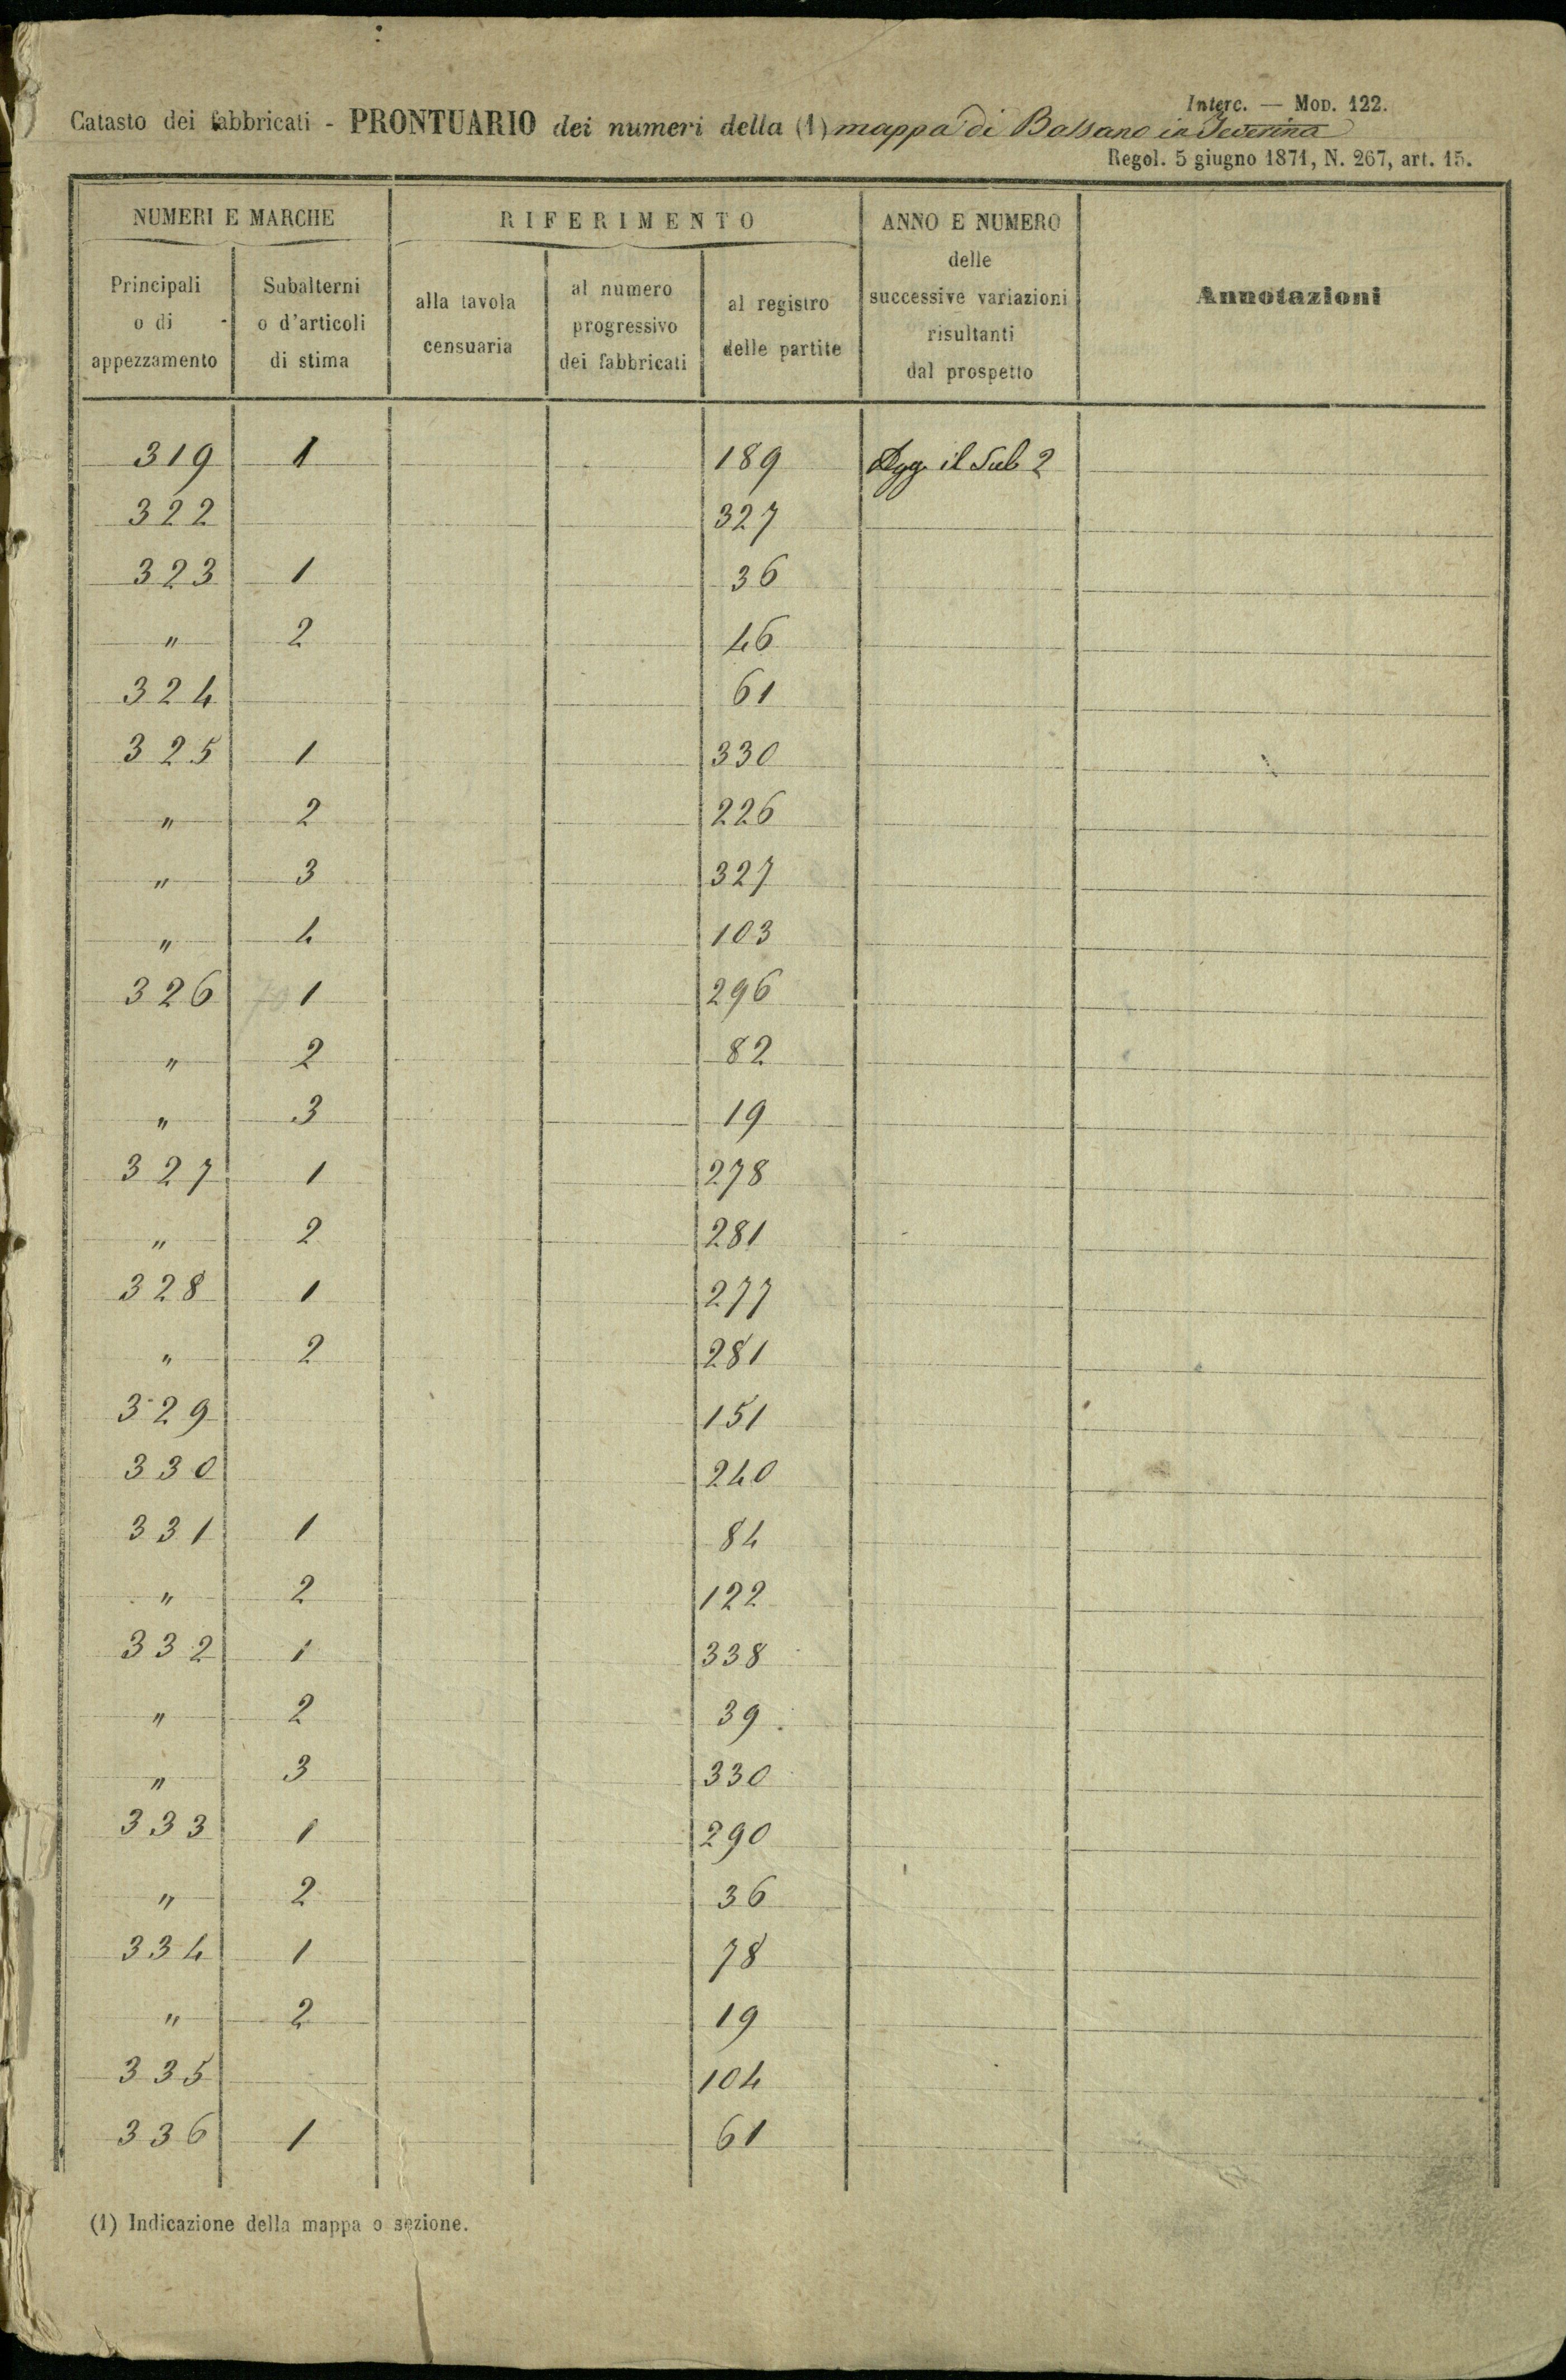 Interc. — Mod. 122.
Catasto dei fabbricati - PRONTUARIO dei numeri della (1) mappa di Bassano in Teverina
Regol. 5 giugno 1871, N. 267, art. 15.
NUMERI E MARCHE RIFERIMENTO ANNO E NUMERO delle successive variazioni risultanti dal prospetto Annotazioni
Principali o di appezzamento Subalterni o d'articoli di stima alla tavola censuaria al numero progressivo dei fabbricati al registro delle partite
319 1 189 Agg. il Sub 2
322 327
323 1 36
" 2 46
324 61
325 1 330
" 2 226
" 3 327
" 4 103
326 1 296
" 2 82
" 3 19
327 1 278
" 2 281
328 1 277
" 2 281
329 151
330 240
331 1 84
" 2 122
332 1 338
" 2 39
" 3 330
333 1 290
" 2 36
334 1 78
" 2 19
335 104
336 1 61
(1) Indicazione della mappa o sezione.